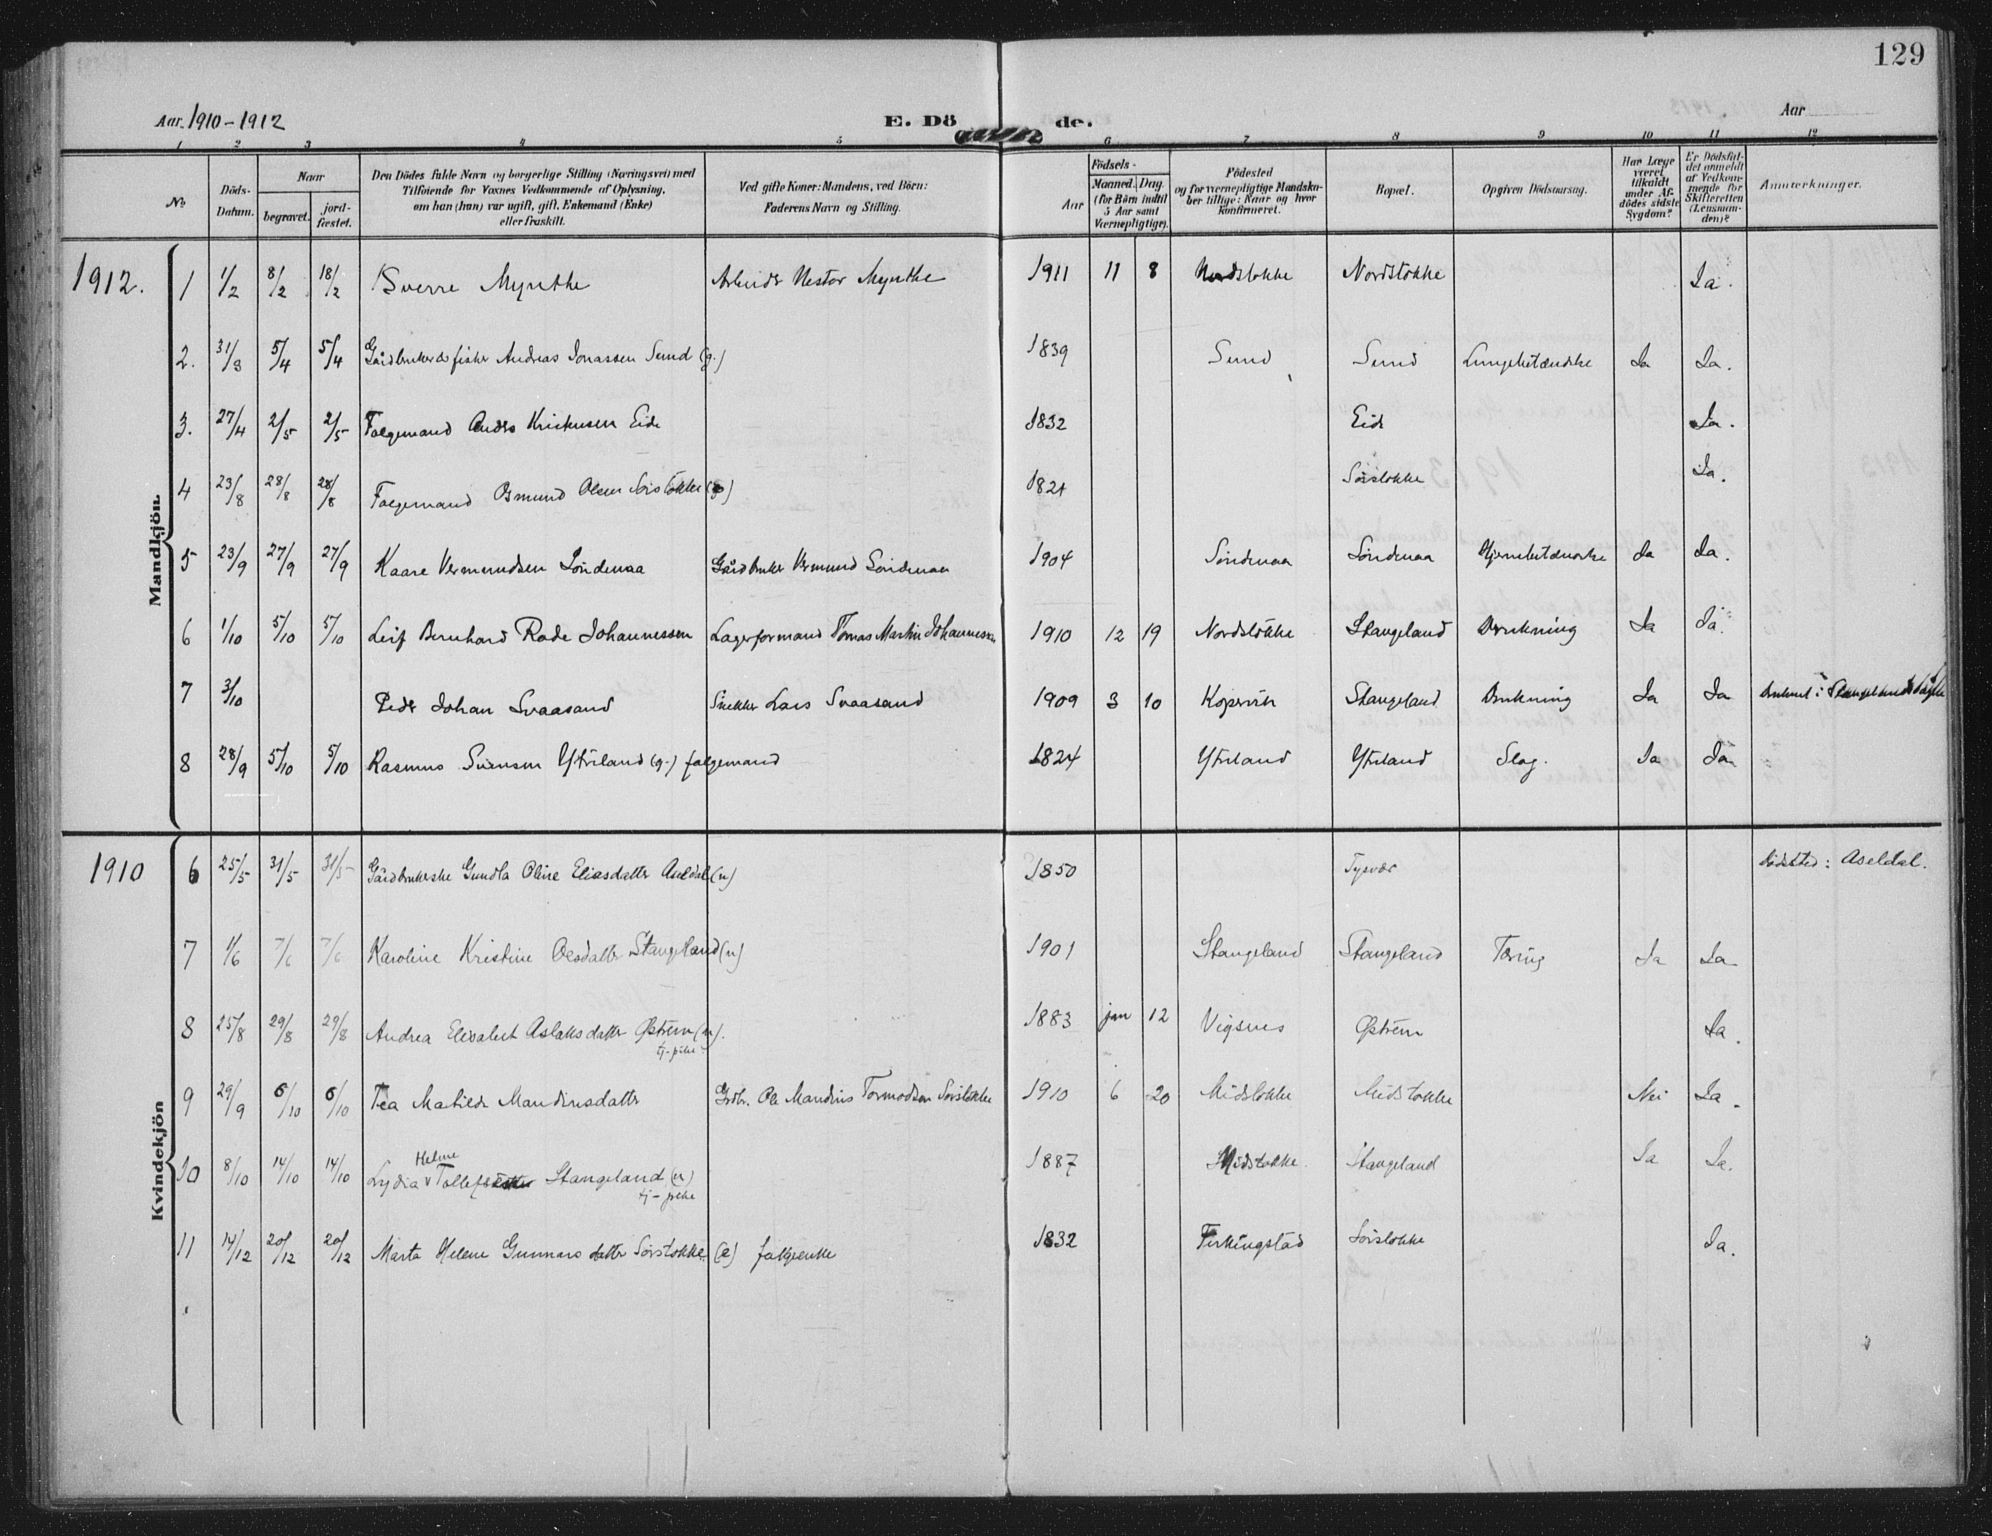 129
Aar 1910-1912 E. Döde. Aar
1 2 3 4 5 6 7 8 9 10 11 12
No Döds-Datum. Naar begravet. jord-fæstet. Den Dödes fulde Navn og borgerlige Stilling (Næringsvei) med Tilföiende for Voxnes Vedkommende af Oplysning, om han (hun) var ugift, gift, Enkemand (Enke) eller fraskilt. Ved gifte Koner: Mandens, ved Börn: Faderens Navn og Stilling. Aar Födsels- Maaned. Dag. (for Börn indtil 5 Aar samt Værnepligtige). Födested og for værnepligtige Mandskaber tillige: Naar og hvor konfirmeret. Bopæl. Opgiven Dödsaarsag. Har Læge været tilkaldt under Afdödes sidste Sygdom? Er Dödsfaldet anmeldt af Vedkommende for Skifteretten (Lensmanden)? Anmærkninger.
Mandkjön
1912. 1 1/2 8/2 18/2 Sverre Mynthe Arbeider Nestor Mynthe 1911 11 8 Nordstokke Nordstokke Ja.
2. 31/3 5/4 5/4 Gårdbruker & fisker Andreas Jonassen Sund (g.) 1839 Sund Sund Lungebetændelse Ja Ja.
3. 27/4 2/5 2/5 Folgemand Eide 1832 Eide Ja.
4 23/8 28/8 28/8 Folgemand Osmund Olsen Sørstokke (g) 1821 Sørstokke Ja.
5 23/9 27/9 27/9 Kaare Vermundsen Søndenaa Gårdbruker Vermund Søndenaa 1904 Søndenaa Søndenaa Hjernebetændelse Ja Ja.
6 1/10 5/10 5/10 Leif Bernhard Rade Johannessen Lagerformand Tomas Martin Johannessen 1910 12 19 Nordstokke Stangeland Drukning Ja Ja.
7 3/10 Peder Johan Svaasand Snekker Lars Svaasand 1909 3 10 Kopervik Stangeland Drukning Ja Ja
8 28/9 5/10 5/10 Rasmus Svensen Ytreland (g.) folgemand 1824 Ytreland Ytreland Slag. Ja Ja
Kvindekjön
1910 6 25/5 31/5 31/5 Gårdbrukerske Gundla Oline Eliasdatter Aseldal (u) 1850 Tysvær Dødssted: Aseldal.
7 1/6 7/6 7/6 Karoline Kristine Olsdatter Stangeland (u) 1901 Stangeland Stangeland Tæring Ja Ja
8 25/8 29/8 29/8 Andrea Elisabet Aslaksdatter Østrem (u). 1883 jan 12 Vigsnes Østrem Ja.
tj-pike
9 29/9 6/10 6/10 Tea Matilde Mandiusdatter Grdbr. Ole Mandius Tormodsen Sørstokke 1910 6 20 Midstokke Midstokke Nei Ja.
10 8/10 14/10 14/10 Lydia Helene Stangeland (u) 1887 Midstokke Stangeland Ja Ja.
tj-pike
11 14/12 20/12 20/12 Marta Helene Gunnarsdatter Sørstokke (e) folgeenke 1832 Ferkingstad Sørstokke Ja.